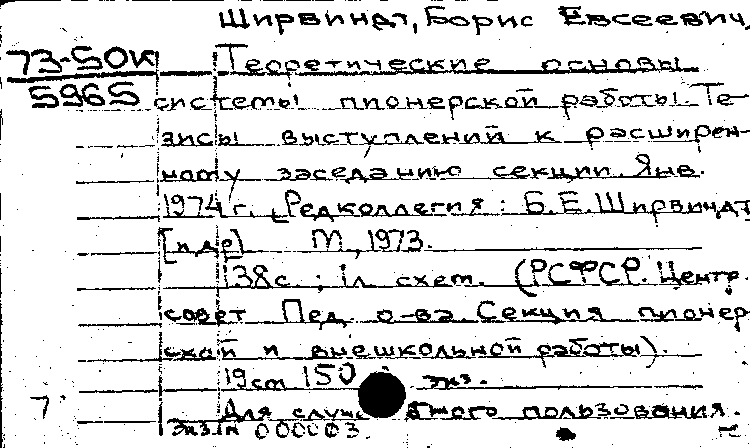 Ширвиндт, Борис Евсеевич,
73-50К
5965
Теоретические основы
системы пионерской работы. Те-
зисы выступлений к расширен-
ному заседанию секции. Янв.
1974 г. [Редколлегия: Б.Е. Ширвиндт
[и др.] М., 1973.
138 с.; 1 л. схем. (РСФСР. Центр.
совет Пед. о-ва Секция пионер-
ской и внешкольной работы).
19 см 150 экз.
7
Для пользования.
Экз. № 000003.